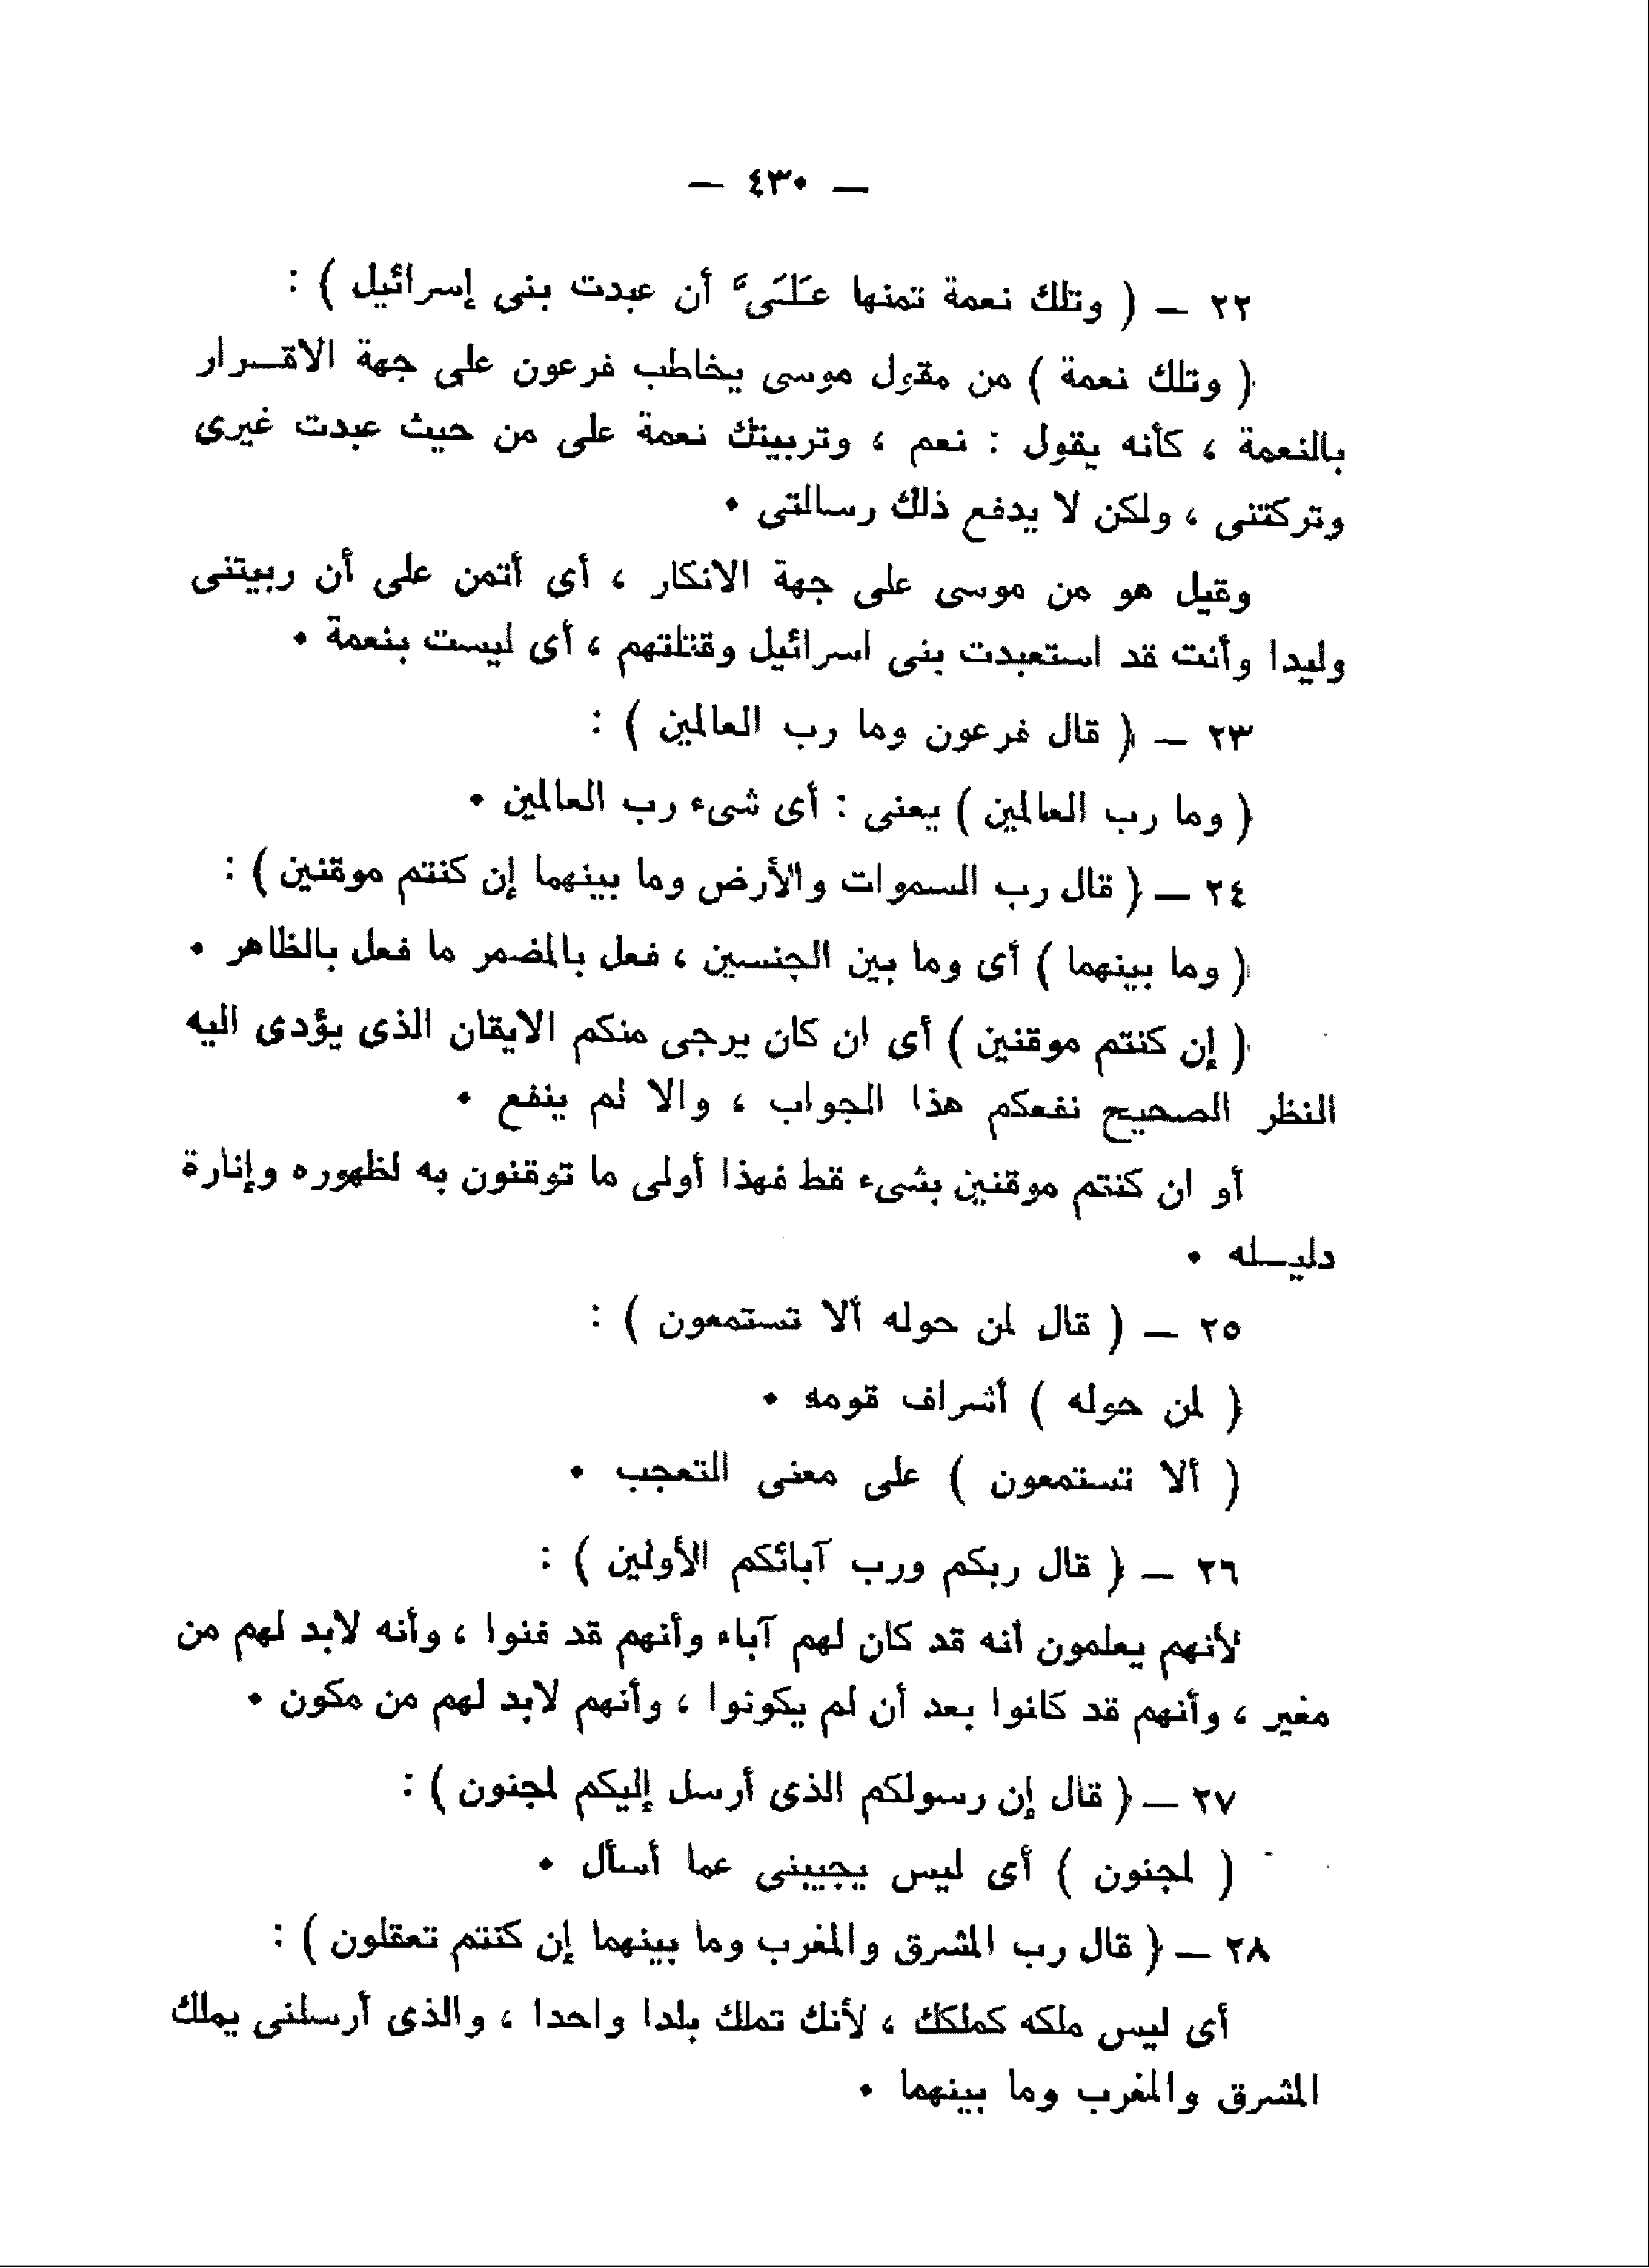 — ٤٣٠ —
٢٢ — ( وتلك نعمة تمنها عَلَىَّ أن عبدت بنى إسرائيل ) :
( وتلك نعمة ) من مقول موسى يخاطب فرعون على جهة الاقــرار
بالنعمة ، كأنه يقول : نعم ، وتربيتك نعمة على من حيث عبدت غيرى
وتركتنى ، ولكن لا يدفع ذلك رسالتى .
وقيل هو من موسى على جهة الانكار ، أى أتمن على أن ربيتنى
وليدا وأنت قد استعبدت بنى اسرائيل وقتلتهم ، أى ليست بنعمة .
٢٣ — ( قال فرعون وما رب العالمين ) :
( وما رب العالمين ) يعنى : أى شىء رب العالمين .
٢٤ — ( قال رب السموات والأرض وما بينهما إن كنتم موقنين ) :
( وما بينهما ) أى وما بين الجنسين ، فعل بالمضمر ما فعل بالظاهر .
( إن كنتم موقنين ) أى ان كان يرجى منكم الايقان الذى يؤدى اليه
النظر الصحيح نفعكم هذا الجواب ، والا لم ينفع .
أو ان كنتم موقنين بشىء قط فهذا أولى ما توقنون به لظهوره وإنارة
دليــله .
٢٥ — ( قال لمن حوله ألا تستمعون ) :
( لمن حوله ) أشراف قومه .
( ألا تستمعون ) على معنى التعجب .
٢٦ — ( قال ربكم ورب آبائكم الأولين ) :
لأنهم يعلمون أنه قد كان لهم آباء وأنهم قد فنوا ، وأنه لابد لهم من
مغير ، وأنهم قد كانوا بعد أن لم يكونوا ، وأنهم لابد لهم من مكون .
٢٧ — ( قال إن رسولكم الذى أرسل إليكم لمجنون ) :
( لمجنون ) أى ليس يجيبنى عما أسأل .
٢٨ — ( قال رب المشرق والمغرب وما بينهما إن كنتم تعقلون ) :
أى ليس ملكه كملكك ، لأنك تملك بلدا واحدا ، والذى أرسلنى يملك
المشرق والمغرب وما بينهما .